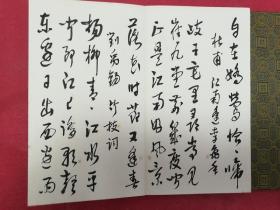 自在娇莺恰恰啼
杜甫 江南逢李龟年
岐王宅里寻常见
崔九堂前几度闻
正是江南好风景
落花时节又逢春
刘禹锡 竹枝词
杨柳青青江水平
闻郎江上踏歌声
东边日出西边雨